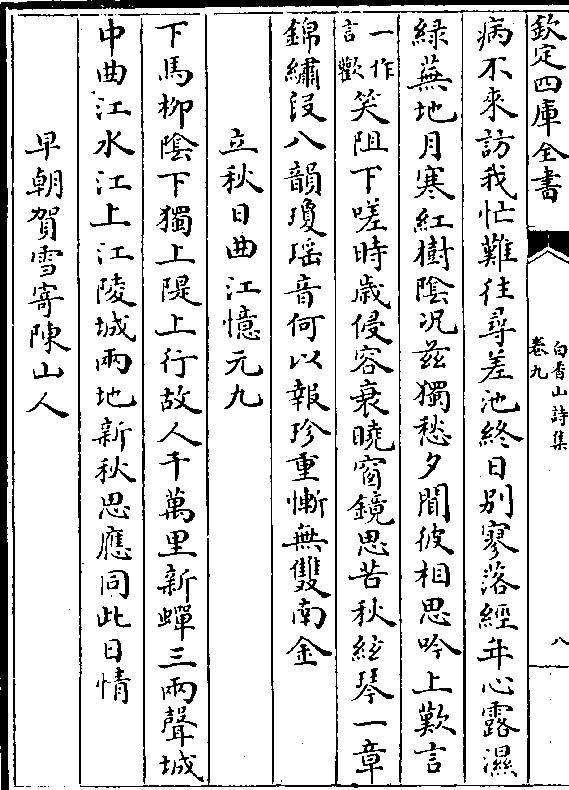 欽定四庫全書
白香山詩集
卷九
八
病不來訪我忙難往尋差池終日別寥落經年心露濕
緑蕪地月寒紅樹陰况兹獨愁夕聞彼相思吟上歎言
一作
言歡
笑阻下嗟時歳侵容衰曉窗鏡思苦秋絃琴一章
錦繡段八韻瓊瑶音何以報珍重慚無雙南金
立秋日曲江憶元九
下馬柳陰下獨上隄上行故人千萬里新蟬三兩聲城
中曲江水江上江陵城兩地新秋思應同此日情
早朝賀雪寄陳山人